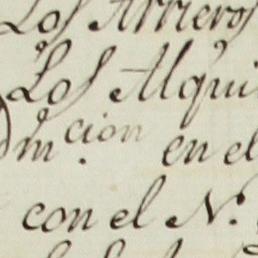 Los Arrieros
Los Alqui
Dm.cion en el
con el N.